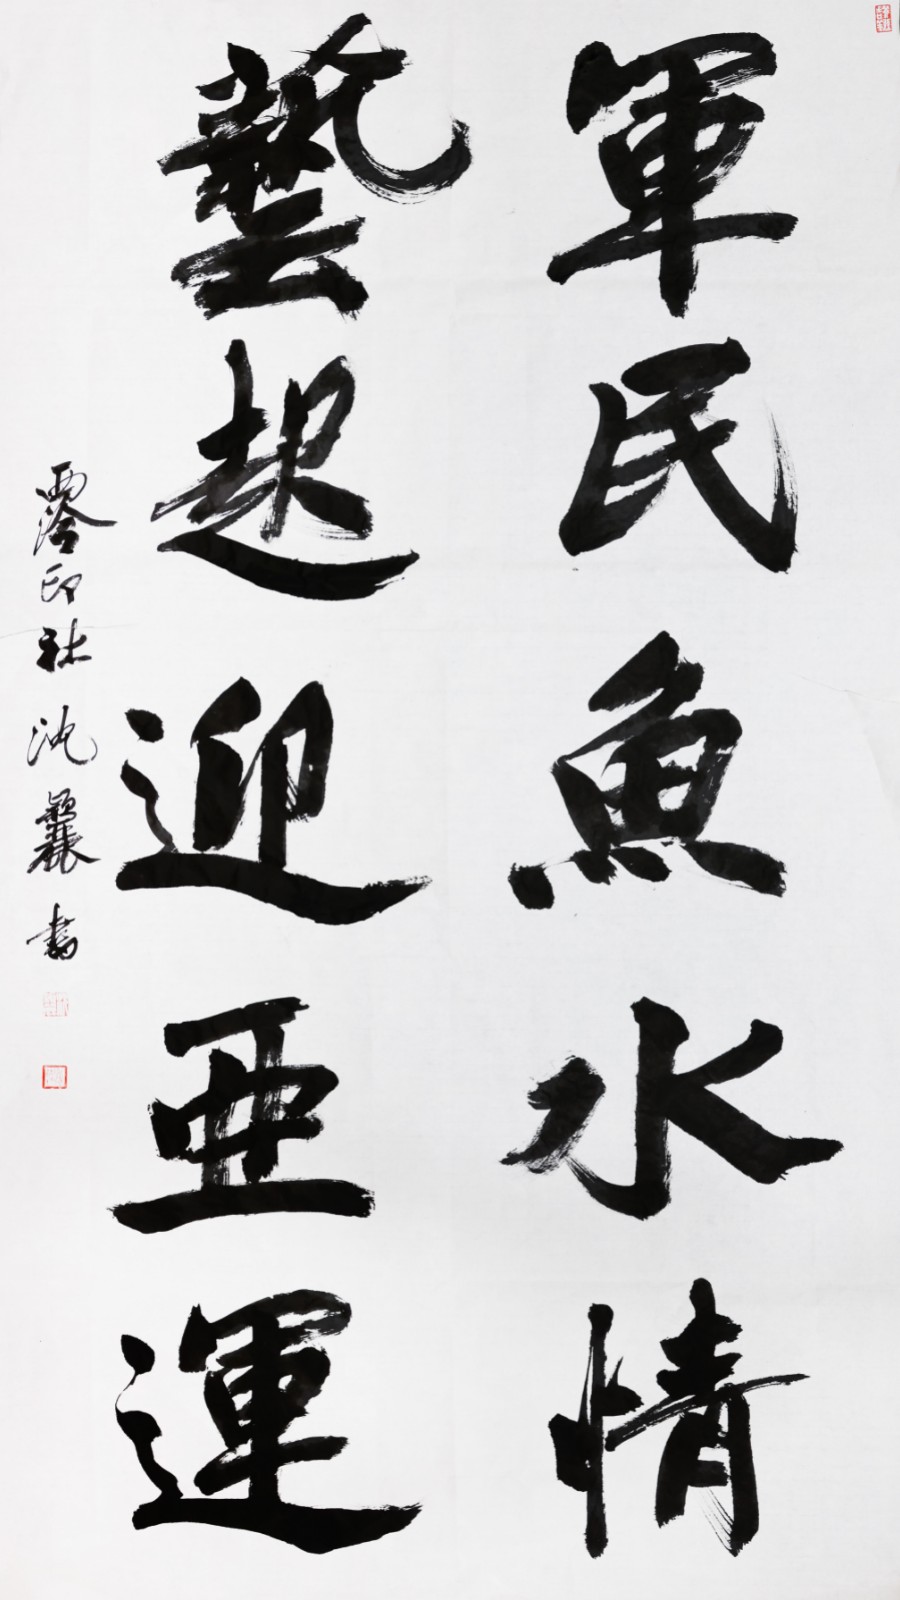 軍民魚水情
藝起迎亞運
西泠印社 沈 書